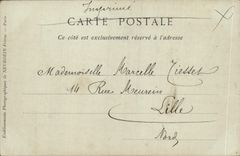 Imprimé
CARTE POSTALE
Ce côté est exclusivement réservé à l'adresse
Mademoiselle Marcelle Tiesset
14 Rue Meurein
Lille
Nord
Etablissements Photographiques de NEURDEIN Frères. — Paris